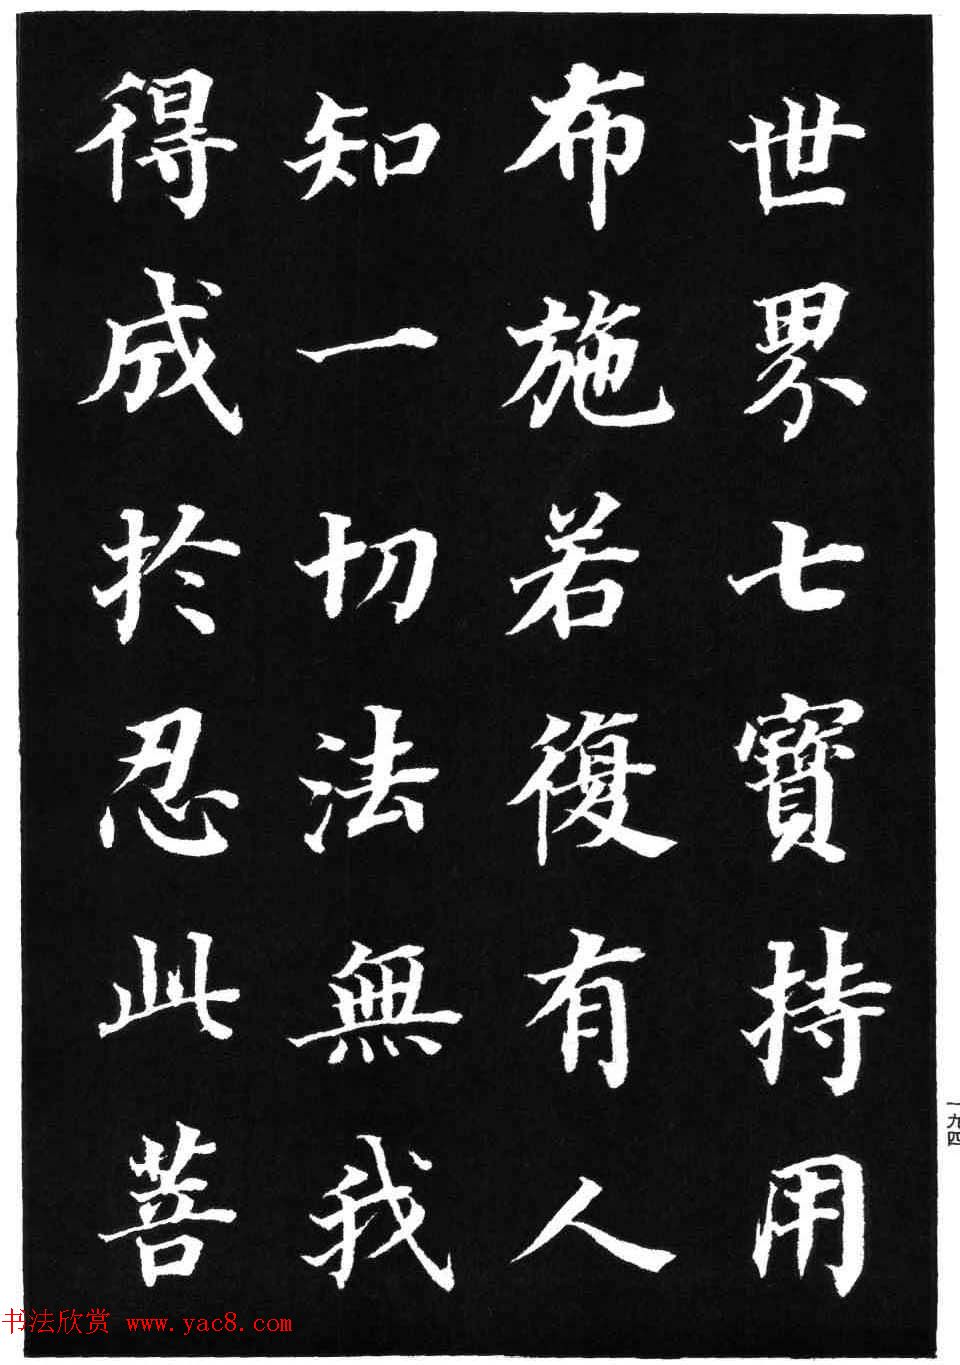 世界七寶持用
布施若復有人
知一切法無我
得成於忍此菩
一九四
书法欣赏 www.yac8.com